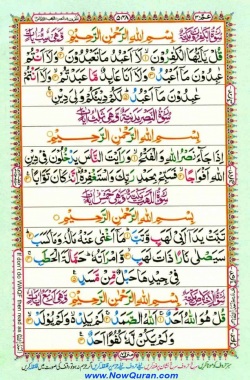 بِسْمِ اللهِ الرَّحْمٰنِ الرَّحِيْمِ
قُلْ يٰٓاَيُّهَا الْكٰفِرُوْنَ لَآ اَعْبُدُ مَا تَعْبُدُوْنَ وَلَآ اَنْتُمْ
عٰبِدُوْنَ مَآ اَعْبُدُ وَلَآ اَنَا عَابِدٌ مَّا عَبَدْتُّمْ وَلَآ اَنْتُمْ
عٰبِدُوْنَ مَآ اَعْبُدُ لَكُمْ دِيْنُكُمْ وَلِيَ دِيْنِ
بِسْمِ اللهِ الرَّحْمٰنِ الرَّحِيْمِ
اِذَا جَآءَ نَصْرُ اللهِ وَالْفَتْحُ وَرَاَيْتَ النَّاسَ يَدْخُلُوْنَ فِيْ دِيْنِ
اللهِ اَفْوَاجًا فَسَبِّحْ بِحَمْدِ رَبِّكَ وَاسْتَغْفِرْهُ اِنَّهٗ كَانَ تَوَّابًا
بِسْمِ اللهِ الرَّحْمٰنِ الرَّحِيْمِ
تَبَّتْ يَدَآ اَبِيْ لَهَبٍ وَّتَبَّ مَآ اَغْنٰى عَنْهُ مَالُهٗ وَمَا كَسَبَ
سَيَصْلٰى نَارًا ذَاتَ لَهَبٍ وَّامْرَاَتُهٗ حَمَّالَةَ الْحَطَبِ
فِيْ جِيْدِهَا حَبْلٌ مِّنْ مَّسَدٍ
بِسْمِ اللهِ الرَّحْمٰنِ الرَّحِيْمِ
قُلْ هُوَ اللهُ اَحَدٌ اَللهُ الصَّمَدُ لَمْ يَلِدْ وَلَمْ يُوْلَدْ
وَلَمْ يَكُنْ لَّهٗ كُفُوًا اَحَدٌ
www.NowQuran.com